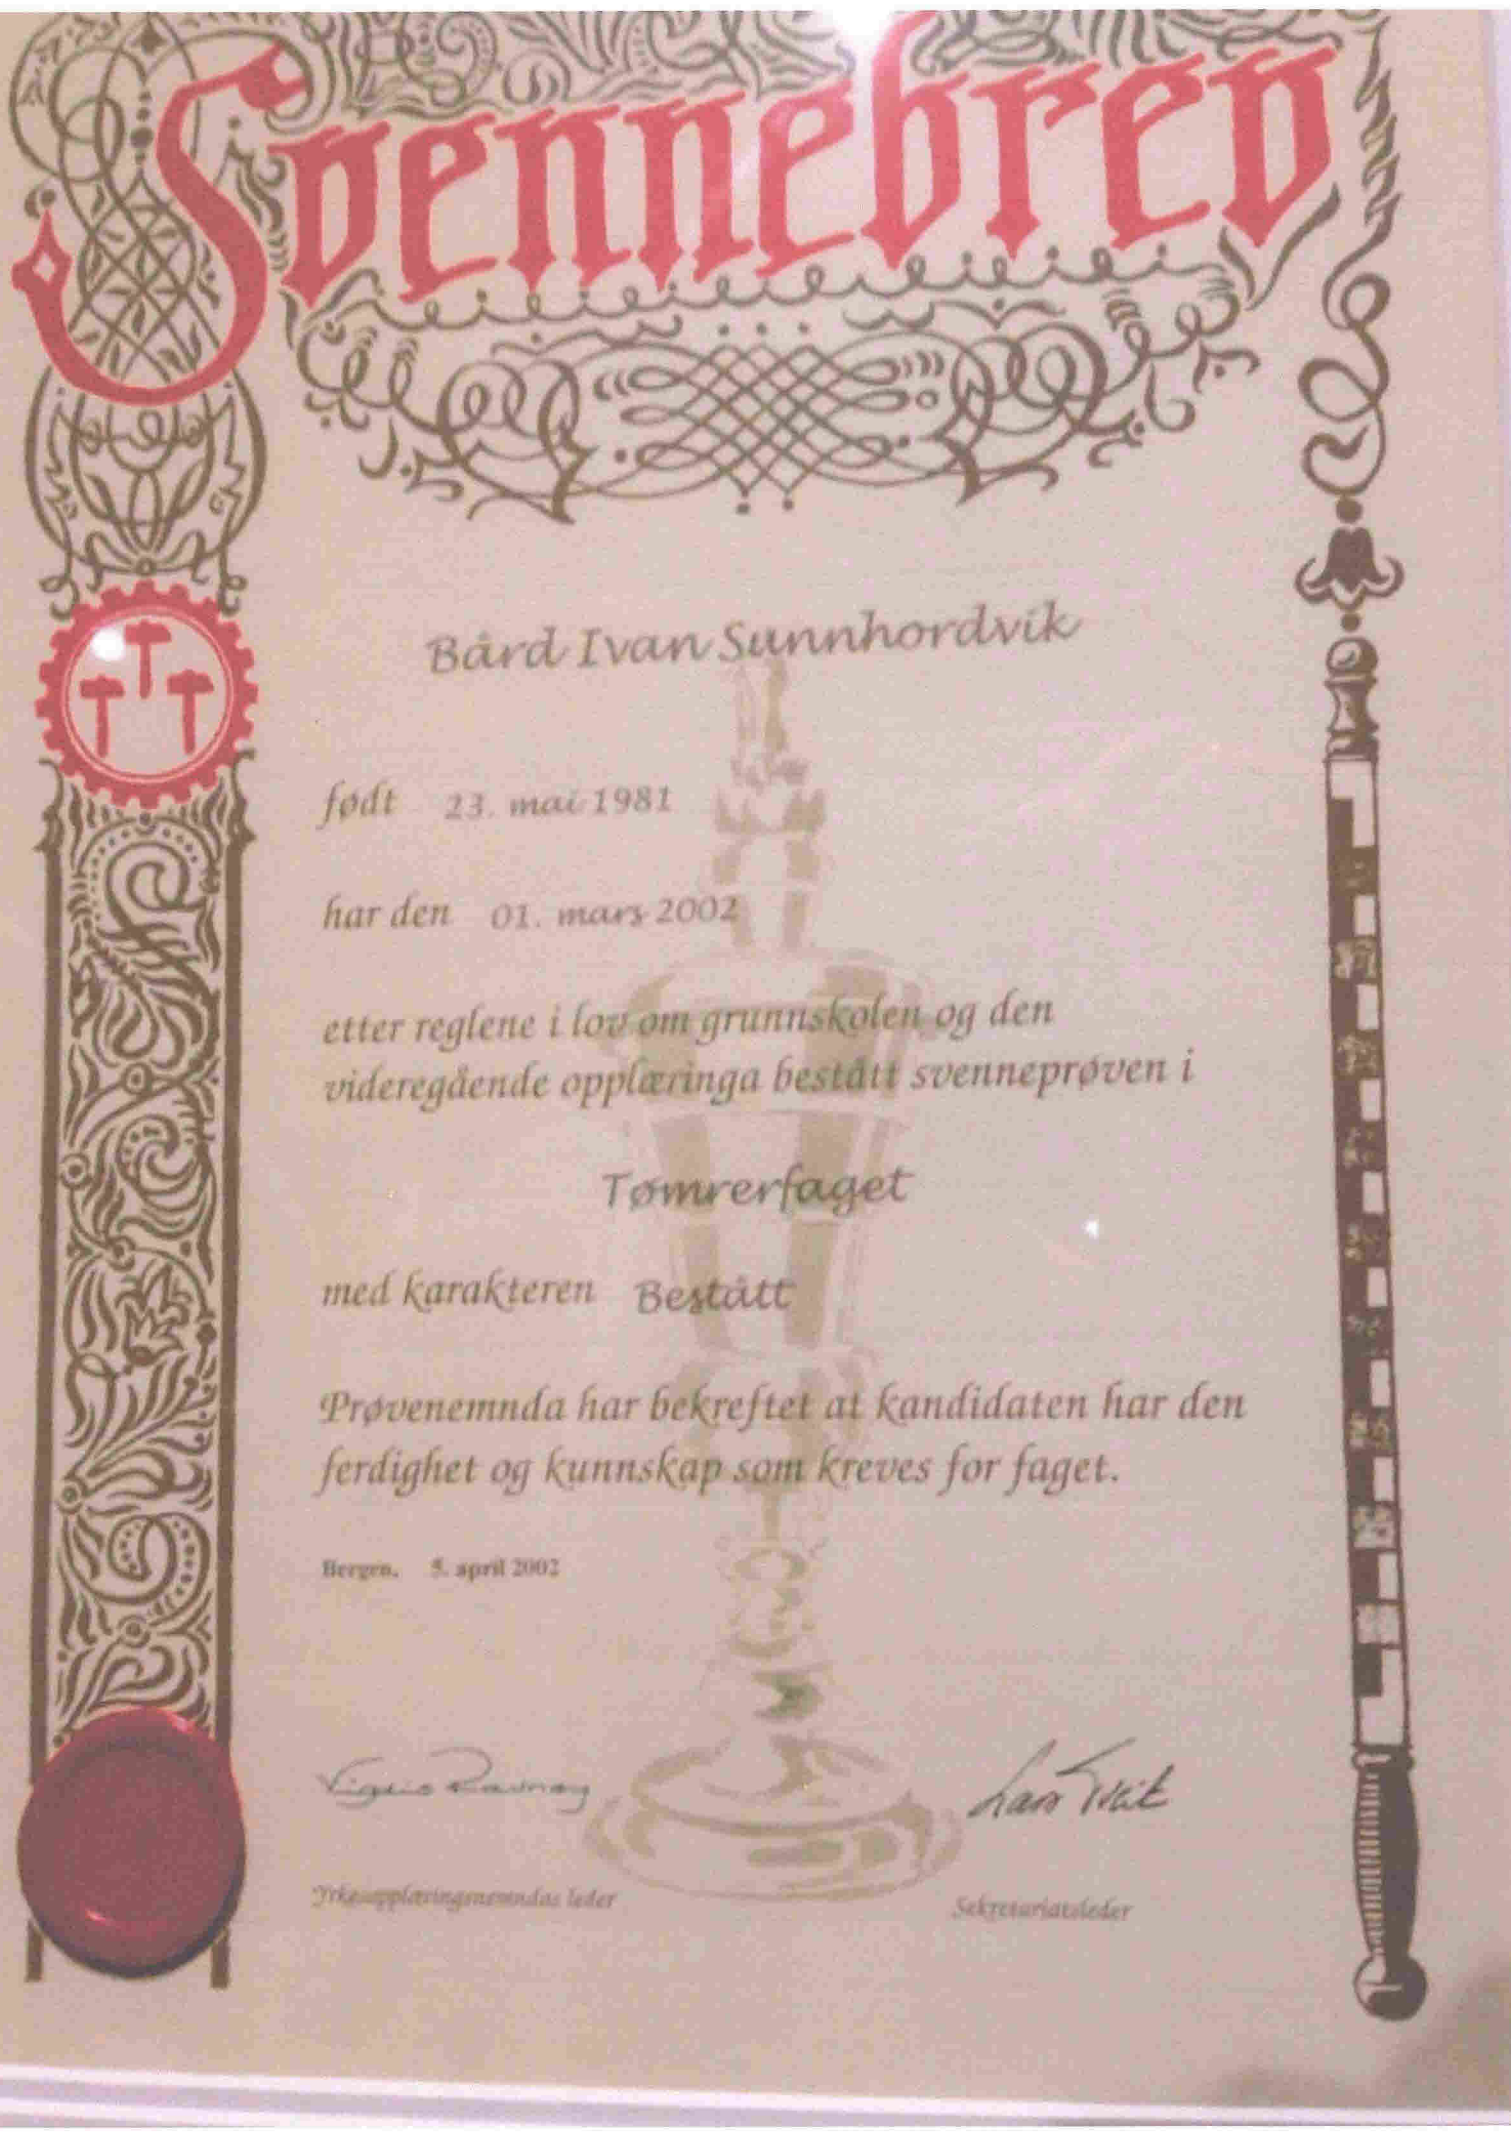 Svennebrev
Bård Ivan Sunnhordvik
født 23. mai 1981
har den 01. mars 2002
etter reglene i lov om grunnskolen og den
videregående opplæringa bestått svenneprøven i
Tømrerfaget
med karakteren Bestått
Prøvenemnda har bekreftet at kandidaten har den
ferdighet og kunnskap som kreves for faget.
Bergen, 5. april 2002
Lars
Yrkesopplæringsnemndas leder
Sekretariatsleder